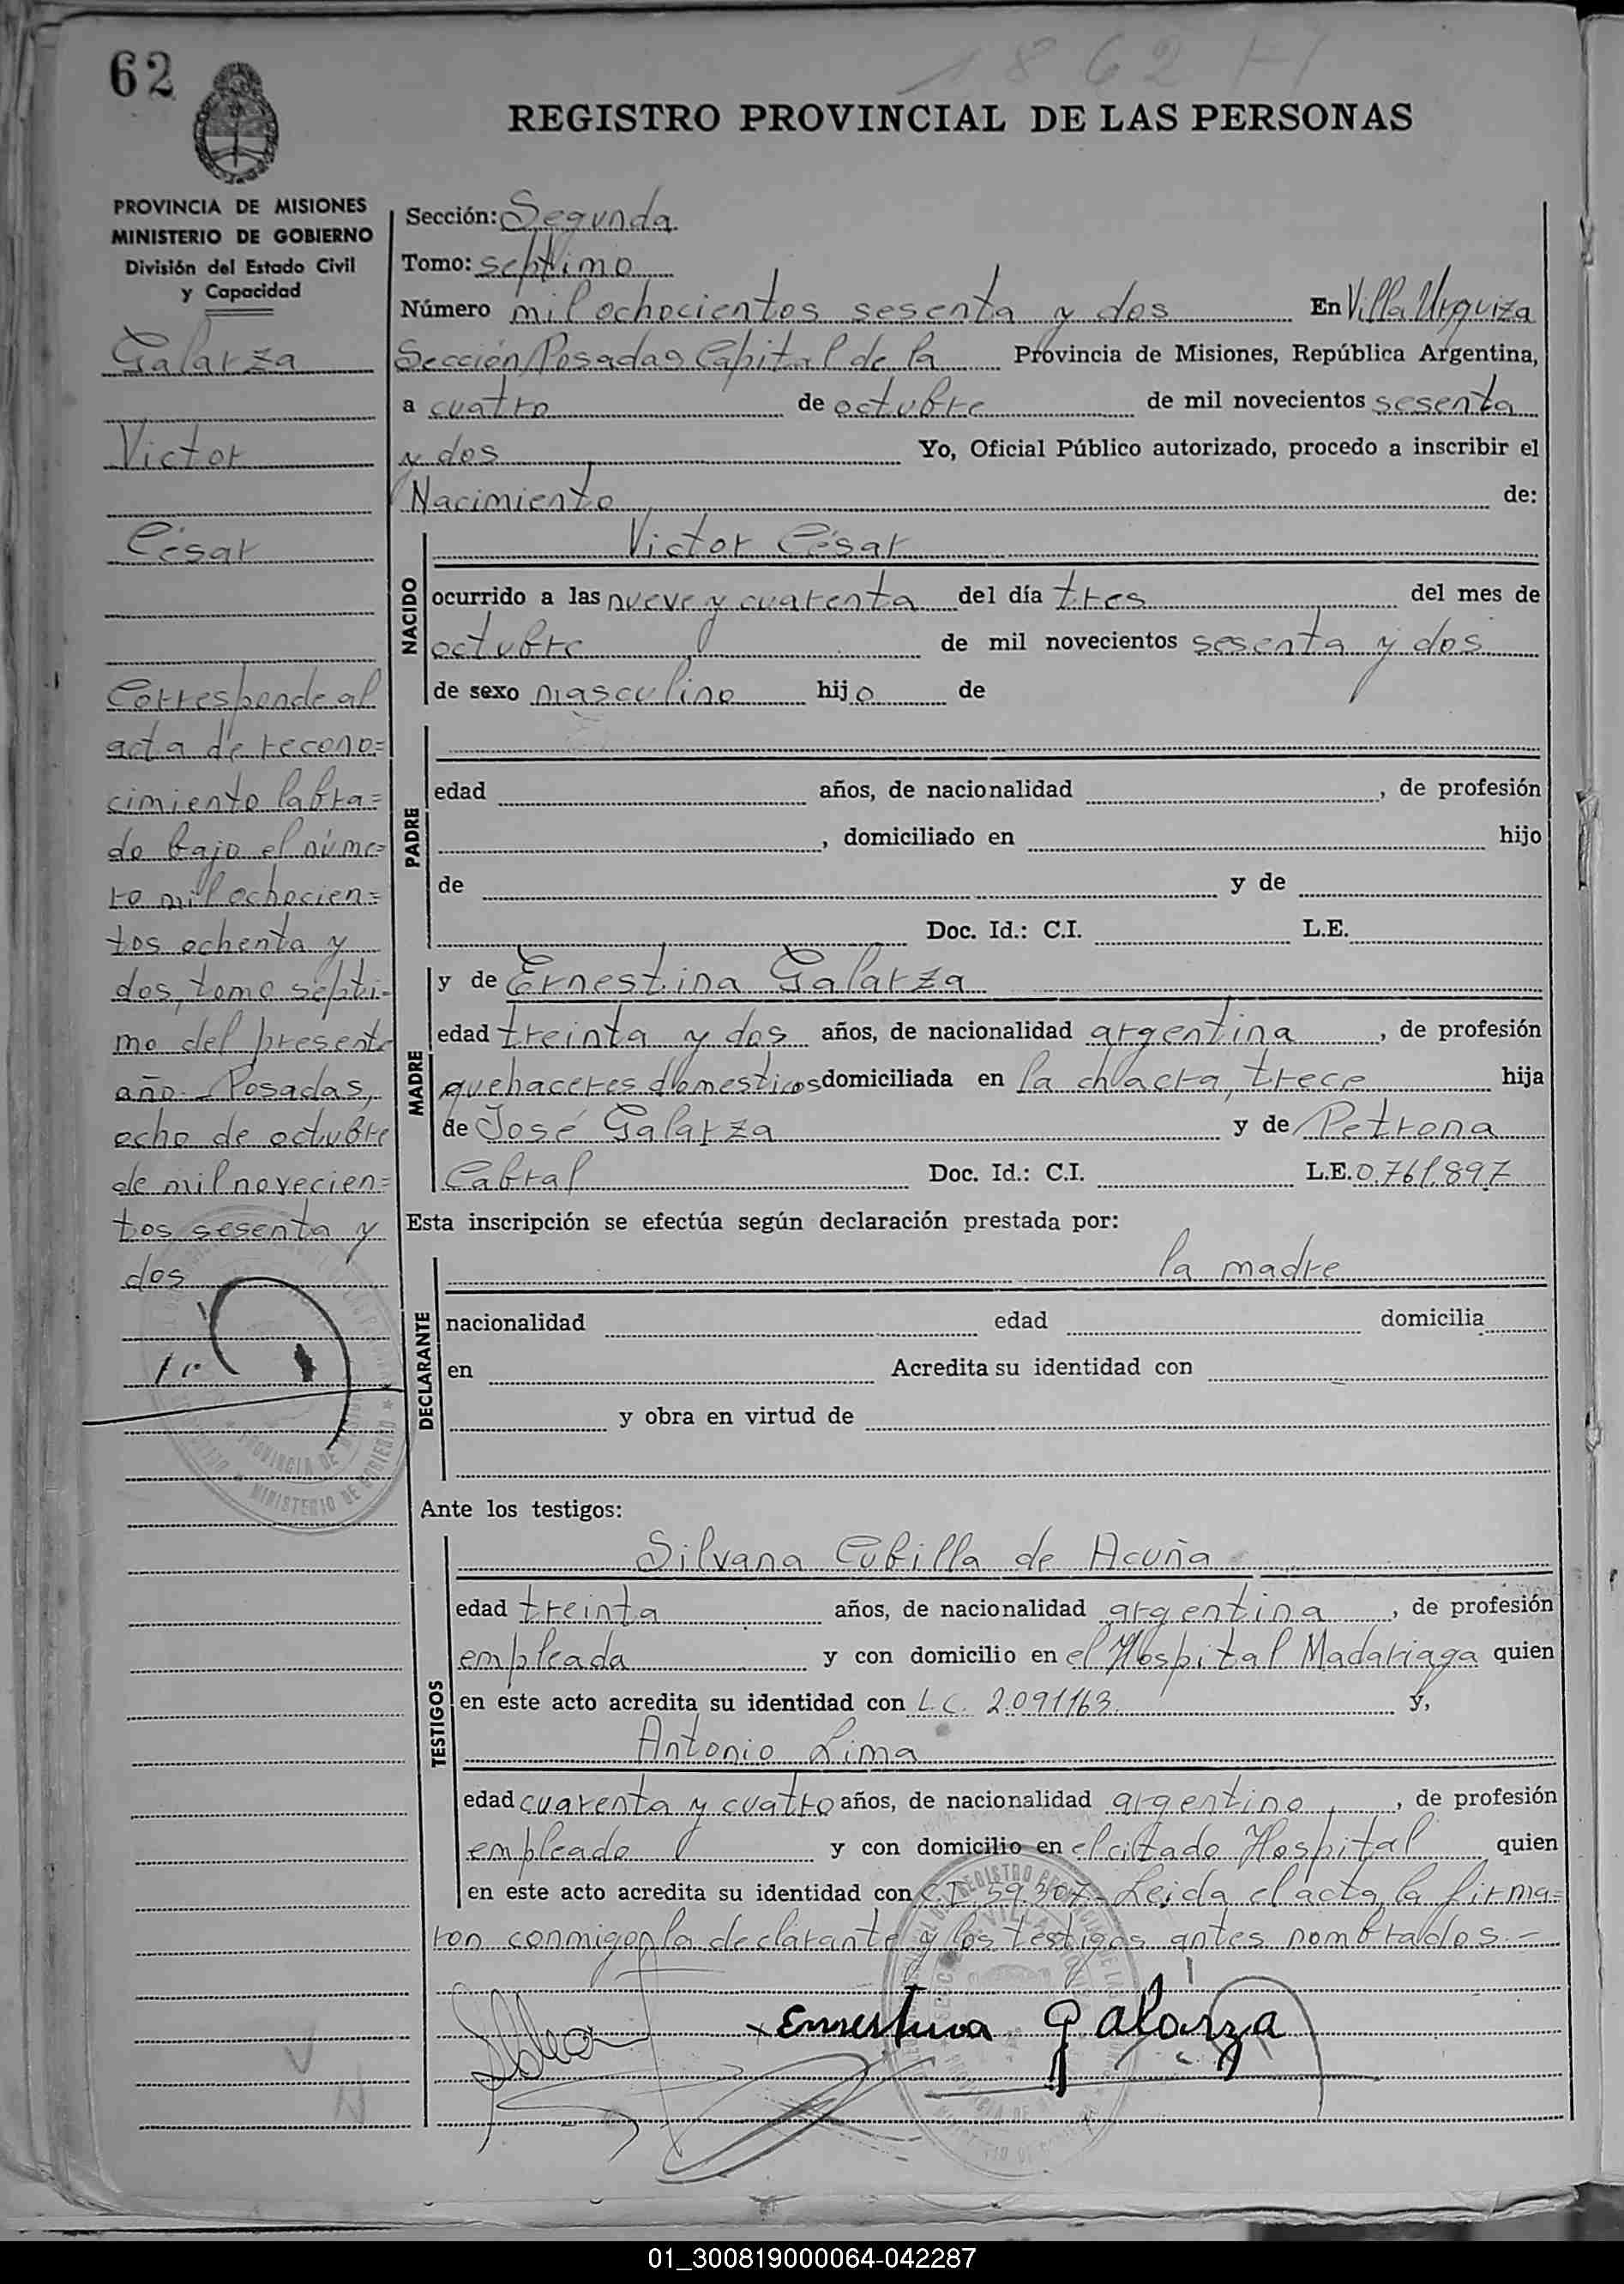 62
1862 H
REGISTRO PROVINCIAL DE LAS PERSONAS
PROVINCIA DE MISIONES
MINISTERIO DE GOBIERNO
División del Estado Civil
y Capacidad
Galarza
Victor
César
Corresponde al
acta de recono=
cimiento labra=
do bajo el núme=
ro mil ochocien=
tos ochenta y
dos, tomo sépti-
mo del presente
año. Posadas,
ocho de octubre
de mil novecien=
tos sesenta y
dos
Sección: Segunda
Tomo: septimo
Número mil ochocientos sesenta y dos En Villa Urquiza
Sección Posadas Capital de la Provincia de Misiones, República Argentina,
a cuatro de octubre de mil novecientos sesenta
y dos Yo, Oficial Público autorizado, procedo a inscribir el
Nacimiento de:
NACIDO
Victor César
ocurrido a las nueve y cuarenta del día tres del mes de
octubre de mil novecientos sesenta y dos
de sexo masculino hijo de
PADRE
edad años, de nacionalidad , de profesión
, domiciliado en hijo
de y de
Doc. Id.: C.I. L.E.
MADRE
y de Ernestina Galarza
edad treinta y dos años, de nacionalidad argentina , de profesión
quehaceres domesticos domiciliada en la chacra, trece hija
de José Galarza y de Petrona
Cabral Doc. Id.: C.I. L.E. 0.761.897
Esta inscripción se efectúa según declaración prestada por:
DECLARANTE
la madre
nacionalidad edad domicilia
en Acredita su identidad con
y obra en virtud de
Ante los testigos:
TESTIGOS
Silvana Cubilla de Acuña
edad treinta años, de nacionalidad argentina , de profesión
empleada y con domicilio en el Hospital Madariaga quien
en este acto acredita su identidad con L.C. 2.091163 y,
Antonio Lima
edad cuarenta y cuatro años, de nacionalidad argentino , de profesión
empleado y con domicilio en el citado Hospital quien
en este acto acredita su identidad con C.I. 59.307 - Leida el acta, la firma=
ron conmigo, la declarante y los testigos antes nombrados. -
x Ernestina Galarza
PROVINCIA DE
MINISTERIO DE GOBIERNO
01_300819000064-042287